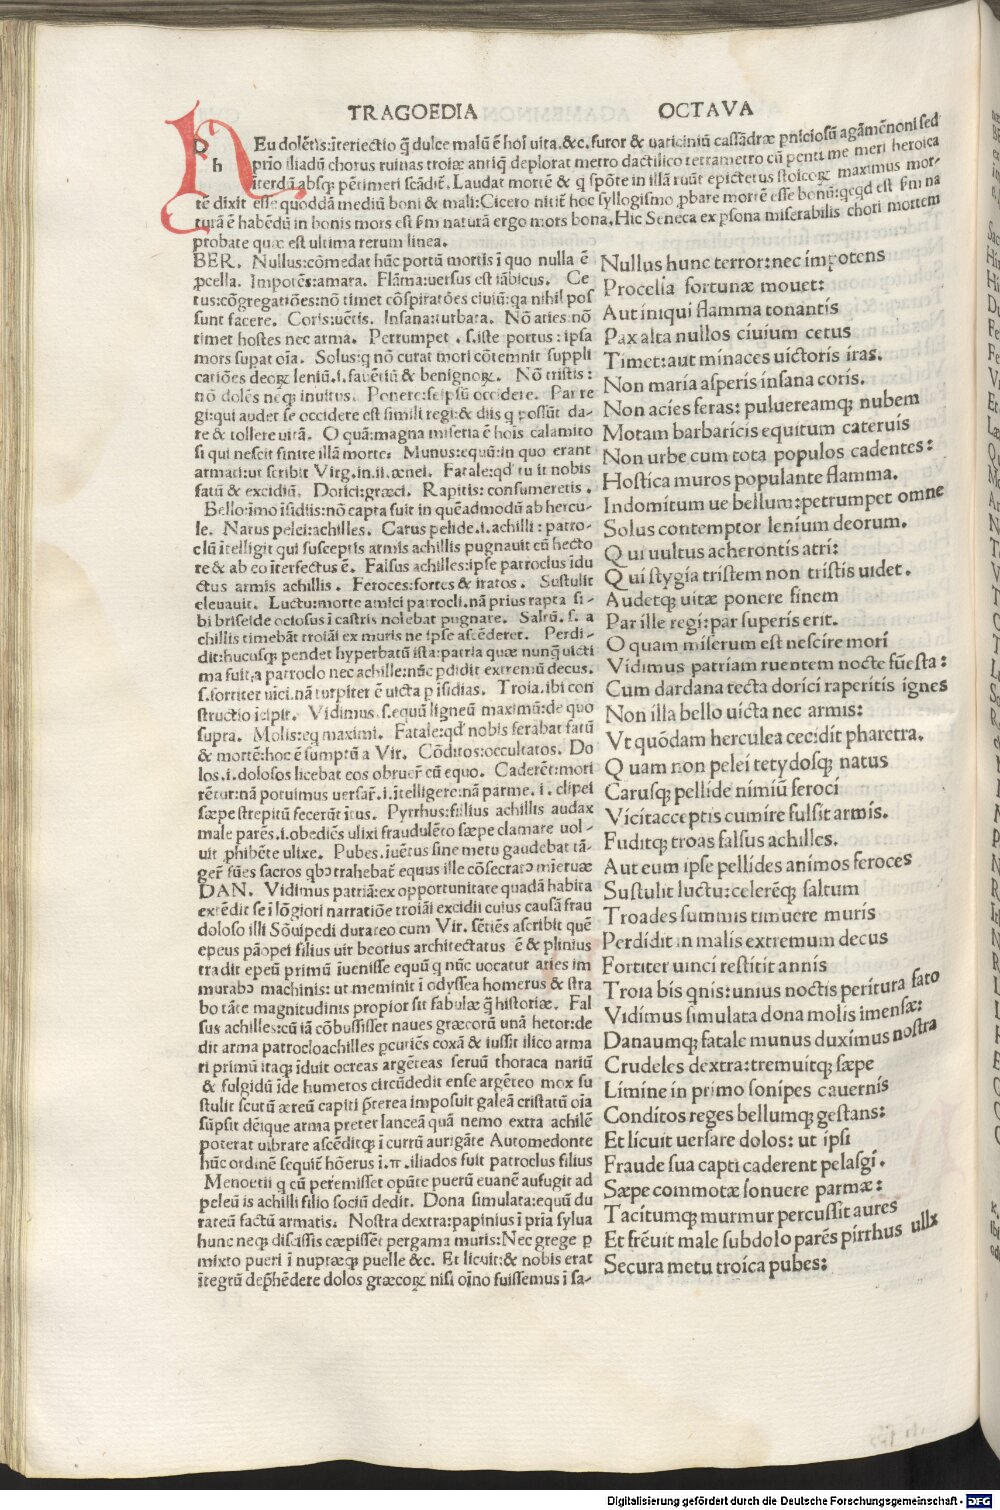 TRAGOEDIA OCTAVA
h Eu dolētis: īteriectio q̄ dulce malū ē hoī uita.&c.furor & uaticiniū cassādræ pniciosū agamēnoni sed
prīo iliadū chorus ruinas troiæ antiq̄ deplorat metro dactilico tetrametro cū penti me meri heroica
īterdū absq; pētimeri scādiē. Laudat mortē & q spōte in illā ruūt epictetus stoicoꝝ maximus mor-
tē dixit esse quoddā mediū boni & mali: Cicero nitiē hoc syllogismo ꝓbare mortē esse bonū: qcqd est ſm na
turā ē habēdū in bonis mors est ſm naturā ergo mors bona. Hic Seneca ex psona miserabilis chori mortem
probate quæ est ultima rerum linea.
BER. Nullus: cōmedat hūc portū mortis ī quo nulla ē
ꝓcella. Impotēs: amara. Flāma: uersus est iābicus. Ce
tus: cōgregatiōes: nō timet cōspiratōes ciuiū: qa nihil pos
sunt facere. Coris: uētis. Insana: turbata. Nō aties: nō
timet hostes nec arma. Perrumpet .s. iste portus: ipsa
mors supat oīa. Solus: q nō curat mori cōtemnit suppli
catiōes deoꝝ leniū.i. fauētiū & benignoꝝ. Nō tristis:
nō dolēs neq; inuitus. Ponere: seipsū occidere. Par re
gi: qui audet se occidere est simili regi: & diis q possūt da-
re & tollere uitā. O quā: magna miseria ē hois calamito
si qui nescit finire illā morte. Munus: equū: in quo erant
armati: ut scribit Virg. in .ii. ænei. Fatale: qd tu it nobis
fatū & excidiū. Dorici: græci. Rapitis: consumeretis.
Bello: imo īsidiis: nō capta fuit in quēadmodū ab hercu-
le. Natus pelei: achilles. Carus pelide.i. achilli: patro-
clū ītelligit qui susceptis armis achillis pugnauit cū hecto
re & ab eo īterfectus ē. Falsus achilles: ipse patroclus īdu
ctus armis achillis. Feroces: fortes & iratos. Sustulit
eleuauit. Luctu: morte amici patrocli. nā prius rapta si-
bi briseide ociosus ī castris nolebat pugnare. Saltū. s. a
chillis timebāt troiāi ex muris ne ipse ascēderet. Perdi-
dit: hucusq; pendet hyperbatū ista: patria quæ nunq̄ uicti
ma fuit, a patroclo nec achille: nūc pdidit extremū decus.
s. fortiter uici. nā turpiter ē uicta p īsidias. Troia. ibi con
structio īcipit. Vidimus .s. equū ligneū maximū: de quo
supra. Molis: eq maximi. Fatale: qd nobis ferabat fatū
& mortē: hoc ē sumptū a Vir. Cōditos: occultatos. Do
los.i. dolosos licebat eos obruer̄ cū equo. Caderēt: mori
rētur: nā potuimus uersar̄. i. ītelligere: nā parme. i. clipei
sæpe strepitū fecerūt ītus. Pyrrhus: filius achillis audax
male parēs. i. obediēs ulixi fraudulēto sæpe clamare uol-
uit phibēte ulixe. Pubes. iuētus sine metu gaudebat tā-
ger̄ fūes sacros qbꝯ trahebat̄ equus ille cōsecratꝯ mieruæ
DAN. Vidimus patriā: ex opportunitate quadā habita
extēdit se ī lōgiori narratiōe troiāi excidii cuius causā frau
doloso illi Sōuipedi durateo cum Vir. sētiēs ascribit quē
epeus pāopei filius uir beotius architectatus ē & plinius
tradit epeū primū īuenisse equū q nūc uocatur aries im
muratꝯ machinis: ut meminit ī odyssea homerus & stra
bo tāte magnitudinis propior sit fabulæ q̄ historiæ. Fal
sus achilles: cū iā cōbussisset naues græcorū unā hetor: de
dit arma patrocloachilles pcutiēs coxā & iussit ilico arma
ri primū itaq; īduit ocreas argēteas seruū thoraca nariū
& fulgidū īde humeros circūdedit ense argēteo mox su
stulit scutū æreū capiti p̄terea imposuit galeā cristatū oīa
sūpsit dēique arma preter lanceā quā nemo extra achilē
poterat uibrare ascēditq; ī currū aurigāte Automedonte
hūc ordinē sequit̄ hōerus ī.π. iliados fuit patroclus filius
Menoetii q cū peremisset opūte puerū euanē aufugit ad
peleū is achilli filio sociū dedit. Dona simulata: equū du
rateū factū armatis. Nostra dextra: papinius ī pria sylua
hunc neq; discissis cæpisset̄ pergama muris: Nec grege p
mixto pueri ī nuptæq; puelle &c. Et licuit: & nobis erat
ītegrū dep̄hēdere dolos græcoꝝ nisi oīno fuissemus ī sa-
Nullus hunc terror: nec impotens
Procella fortunæ mouet:
Aut iniqui flamma tonantis
Pax alta nullos ciuium cetus
Timet: aut minaces uictoris iras.
Non maria asperis insana coris.
Non acies feras: puluereamq; nubem
Motam barbaricis equitum cateruis
Non urbe cum tota populos cadentes:
Hostica muros populante flamma.
Indomitum ue bellum: petrumpet omne
Solus contemptor lenium deorum.
Qui uultus acherontis atri:
Qui stygia tristem non tristis uidet.
Audetq; uitæ ponere finem
Par ille regi: par superis erit.
O quam miserum est nescire mori
Vidimus patriam ruentem nocte fūesta:
Cum dardana tecta dorici raperitis ignes
Non illa bello uicta nec armis:
Vt quōdam herculea cecidit pharetra.
Quam non pelei tetydosq; natus
Carusq; pellide nimiū feroci
Vicit acceptis cum ire fulsit armis.
Fuditq; troas falsus achilles.
Aut eum ipse pellides animos feroces
Sustulit luctu: celerēq; saltum
Troades summis timuere muris
Perdidit in malis extremum decus
Fortiter uinci restitit annis
Troia bis qnis: unius noctis peritura fato
Vidimus simulata dona molis imensæ:
Danaumq; fatale munus duximus nostra
Crudeles dextra: tremuitq; sæpe
Limine in primo sonipes cauernis
Conditos reges bellumq; gestans:
Et licuit uersare dolos: ut ipsi
Fraude sua capti caderent pelasgi.
Sæpe commotæ sonuere parmæ:
Tacitumq; murmur percussit aures
Et frēuit male subdolo parēs pirrhus ullx
Secura metu troica pubes:
Digitalisierung gefördert durch die Deutsche Forschungsgemeinschaft - DFG